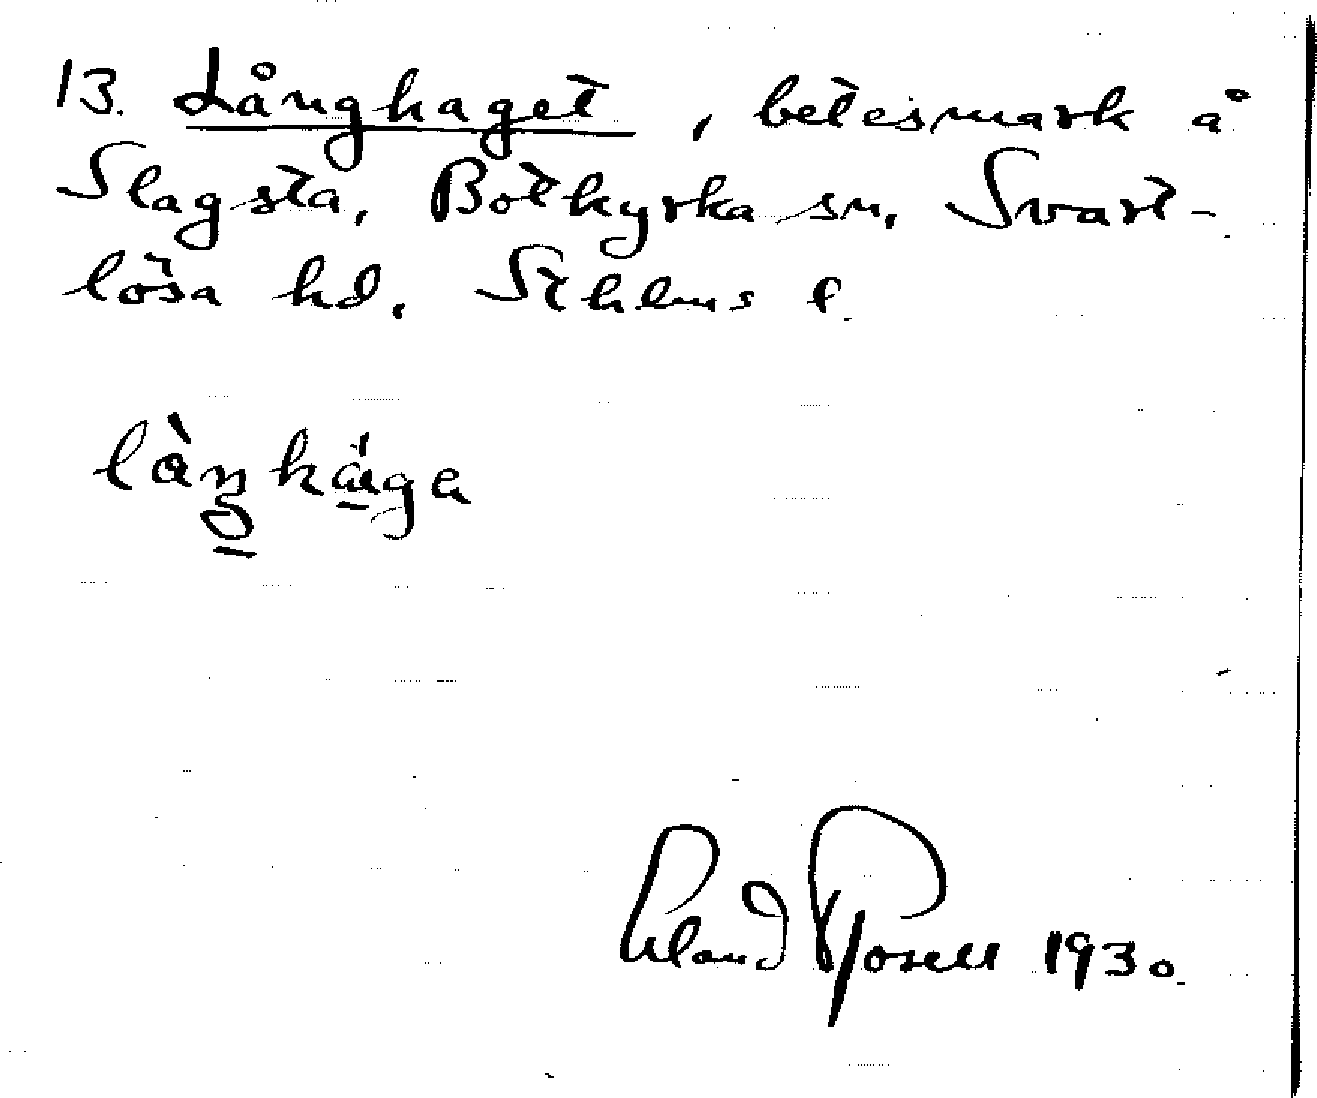 13. Långhaget, betesmark å
Slagsta, Botkyrka sn, Svart-
lösa hd, Sthlms l.
Erland Rosell 1930.